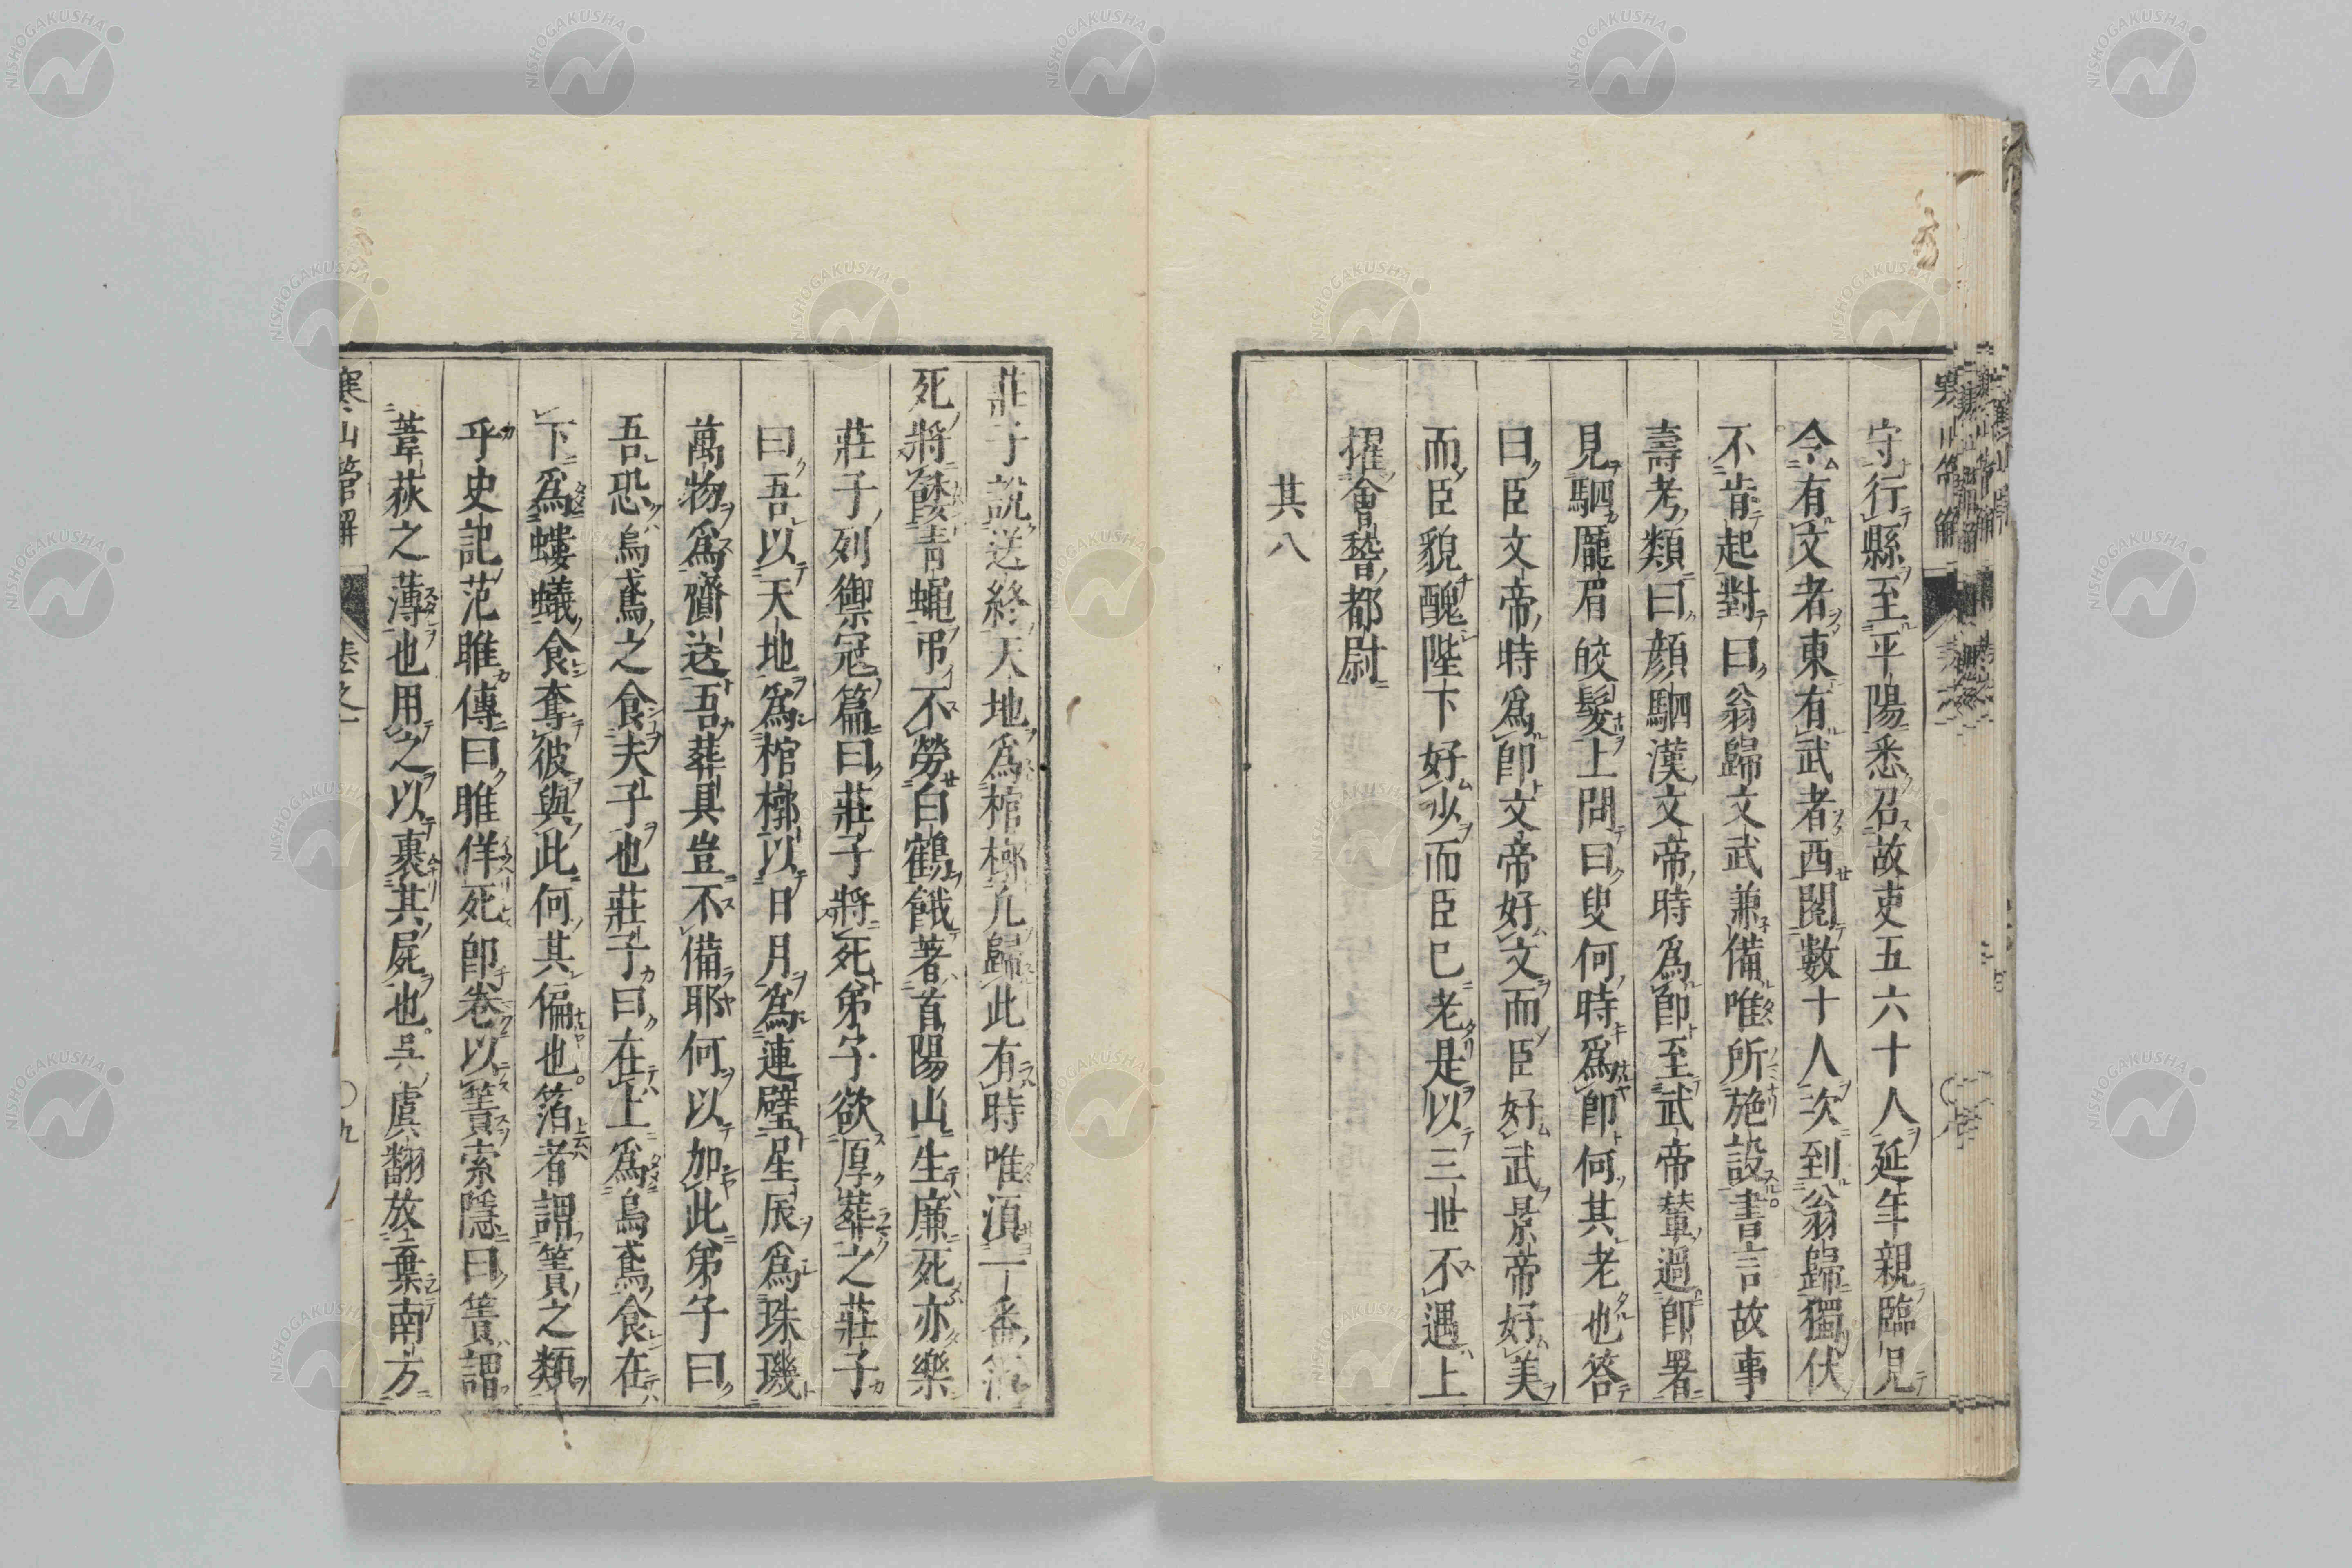 守行縣至平陽悉召故吏五六十人延年親臨見
令有文者東有武者西閱數十人次到翁歸獨伏
不肯起對曰翁歸文武兼備唯所施設書言故事
壽考類曰顔駟漢文帝時爲郎至武帝輦過郎署
見駟龐眉皎髮上問曰叟何時爲郎何其老也答
曰臣文帝時爲郎文帝好文而臣好武景帝好美
而臣貌醜陛下好少而臣已老是以三世不遇上
擢會稽都尉
其八
莊子說送終天地爲棺槨凢歸此有時唯湏一番箔
死將餧青蠅弔不勞白鶴餓著首陽山生廉死亦樂
莊子列禦冦篇曰莊子將死弟子欲厚葬之莊子
曰吾以天地爲棺槨以日月爲連璧星辰爲珠璣
萬物爲齎送吾葬具豈不備耶何以加此弟子曰
吾恐烏鳶之食夫子也莊子曰在上爲烏鳶食在
下爲螻蟻食奪彼與此何其偏也箔者謂簀之類
乎史記范雎傳曰雎佯死卽卷以簀索隱曰簀謂
葦荻之薄也用之以裹其屍也呉虞翻放棄南方
寒山管解 卷之一 九
NISHOGAKUSHA